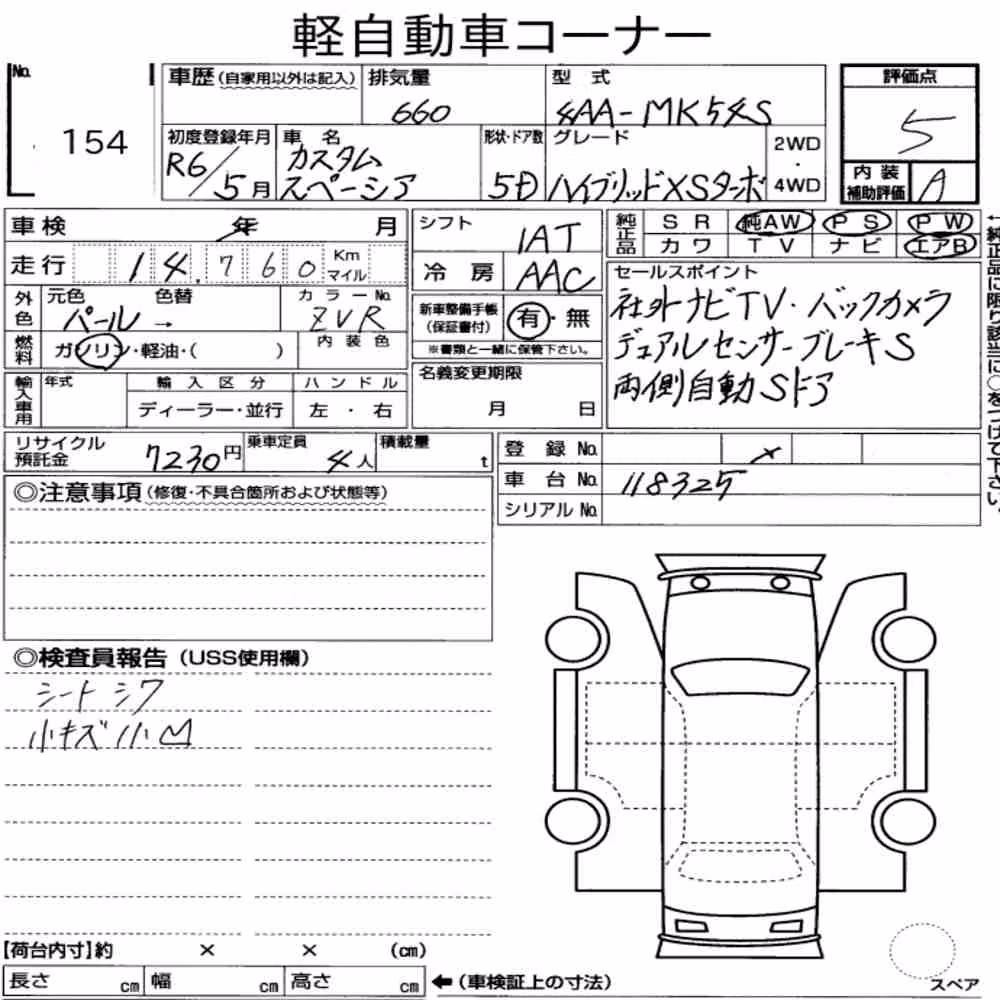 軽自動車コーナー
No.
154
車歴(自家用以外は記入)
排気量
660
型 式
4AA-MK54S
評価点
5
初度登録年月
R6/5月
車 名
カスタム
スペーシア
形状・ドア数
5D
グレード
ハイブリッドXSターボ
2WD
・
4WD
内 装
補助評価
A
車検 年 月
シフト
IAT
純正品
S R 純AW P S P W
カワ T V ナビ エアB
走行 14,760 Km
マイル
冷 房 AAC
セールスポイント
社外ナビTV・バックカメラ
デュアルセンサーブレーキS
両側自動Sドア
←純正品に限り該当に○をつけて下さい。
外色
元色 色替
パール →
カラーNo.
ZVR
新車整備手帳
(保証書付)
有・無
※書類と一緒に保管下さい。
燃料
ガソリン・軽油・( )
内 装 色
輸入車用
年式
輸 入 区 分
ハ ン ド ル
ディーラー・並行
左 ・ 右
名義変更期限
月 日
リサイクル
預託金
7230円
乗車定員
4人
積載量
t
登 録 No.
車 台 No. 118325
シリアル No.
◎注意事項(修復・不具合箇所および状態等)
◎検査員報告(USS使用欄)
シートシワ
小キズ小凹
【荷台内寸】約 × × (cm)
長さ cm 幅 cm 高さ cm ←(車検証上の寸法)
スペア